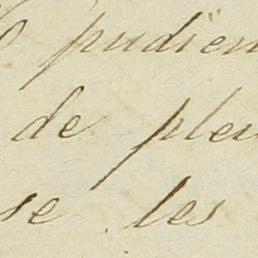 pudien
de pleu
se les